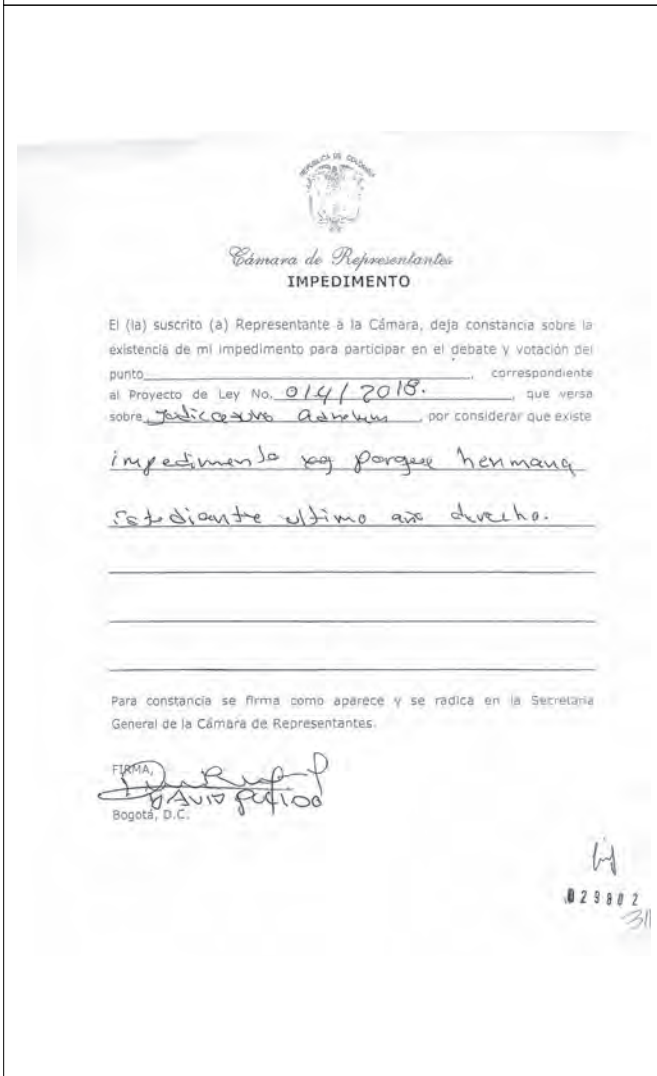 REPUBLICA DE COLOMBIA
Cámara de Representantes
IMPEDIMENTO
El (la) suscrito (a) Representante a la Cámara, deja constancia sobre la
existencia de mi impedimento para participar en el debate y votación del
punto , correspondiente
al Proyecto de Ley No. 014/2018. , que versa
sobre , por considerar que existe
impedimento porque hermana
Estudiante ultimo año derecho.
Para constancia se firma como aparece y se radica en la Secretaria
General de la Cámara de Representantes.
FIRMA,
DAVID
Bogotá, D.C.
029802